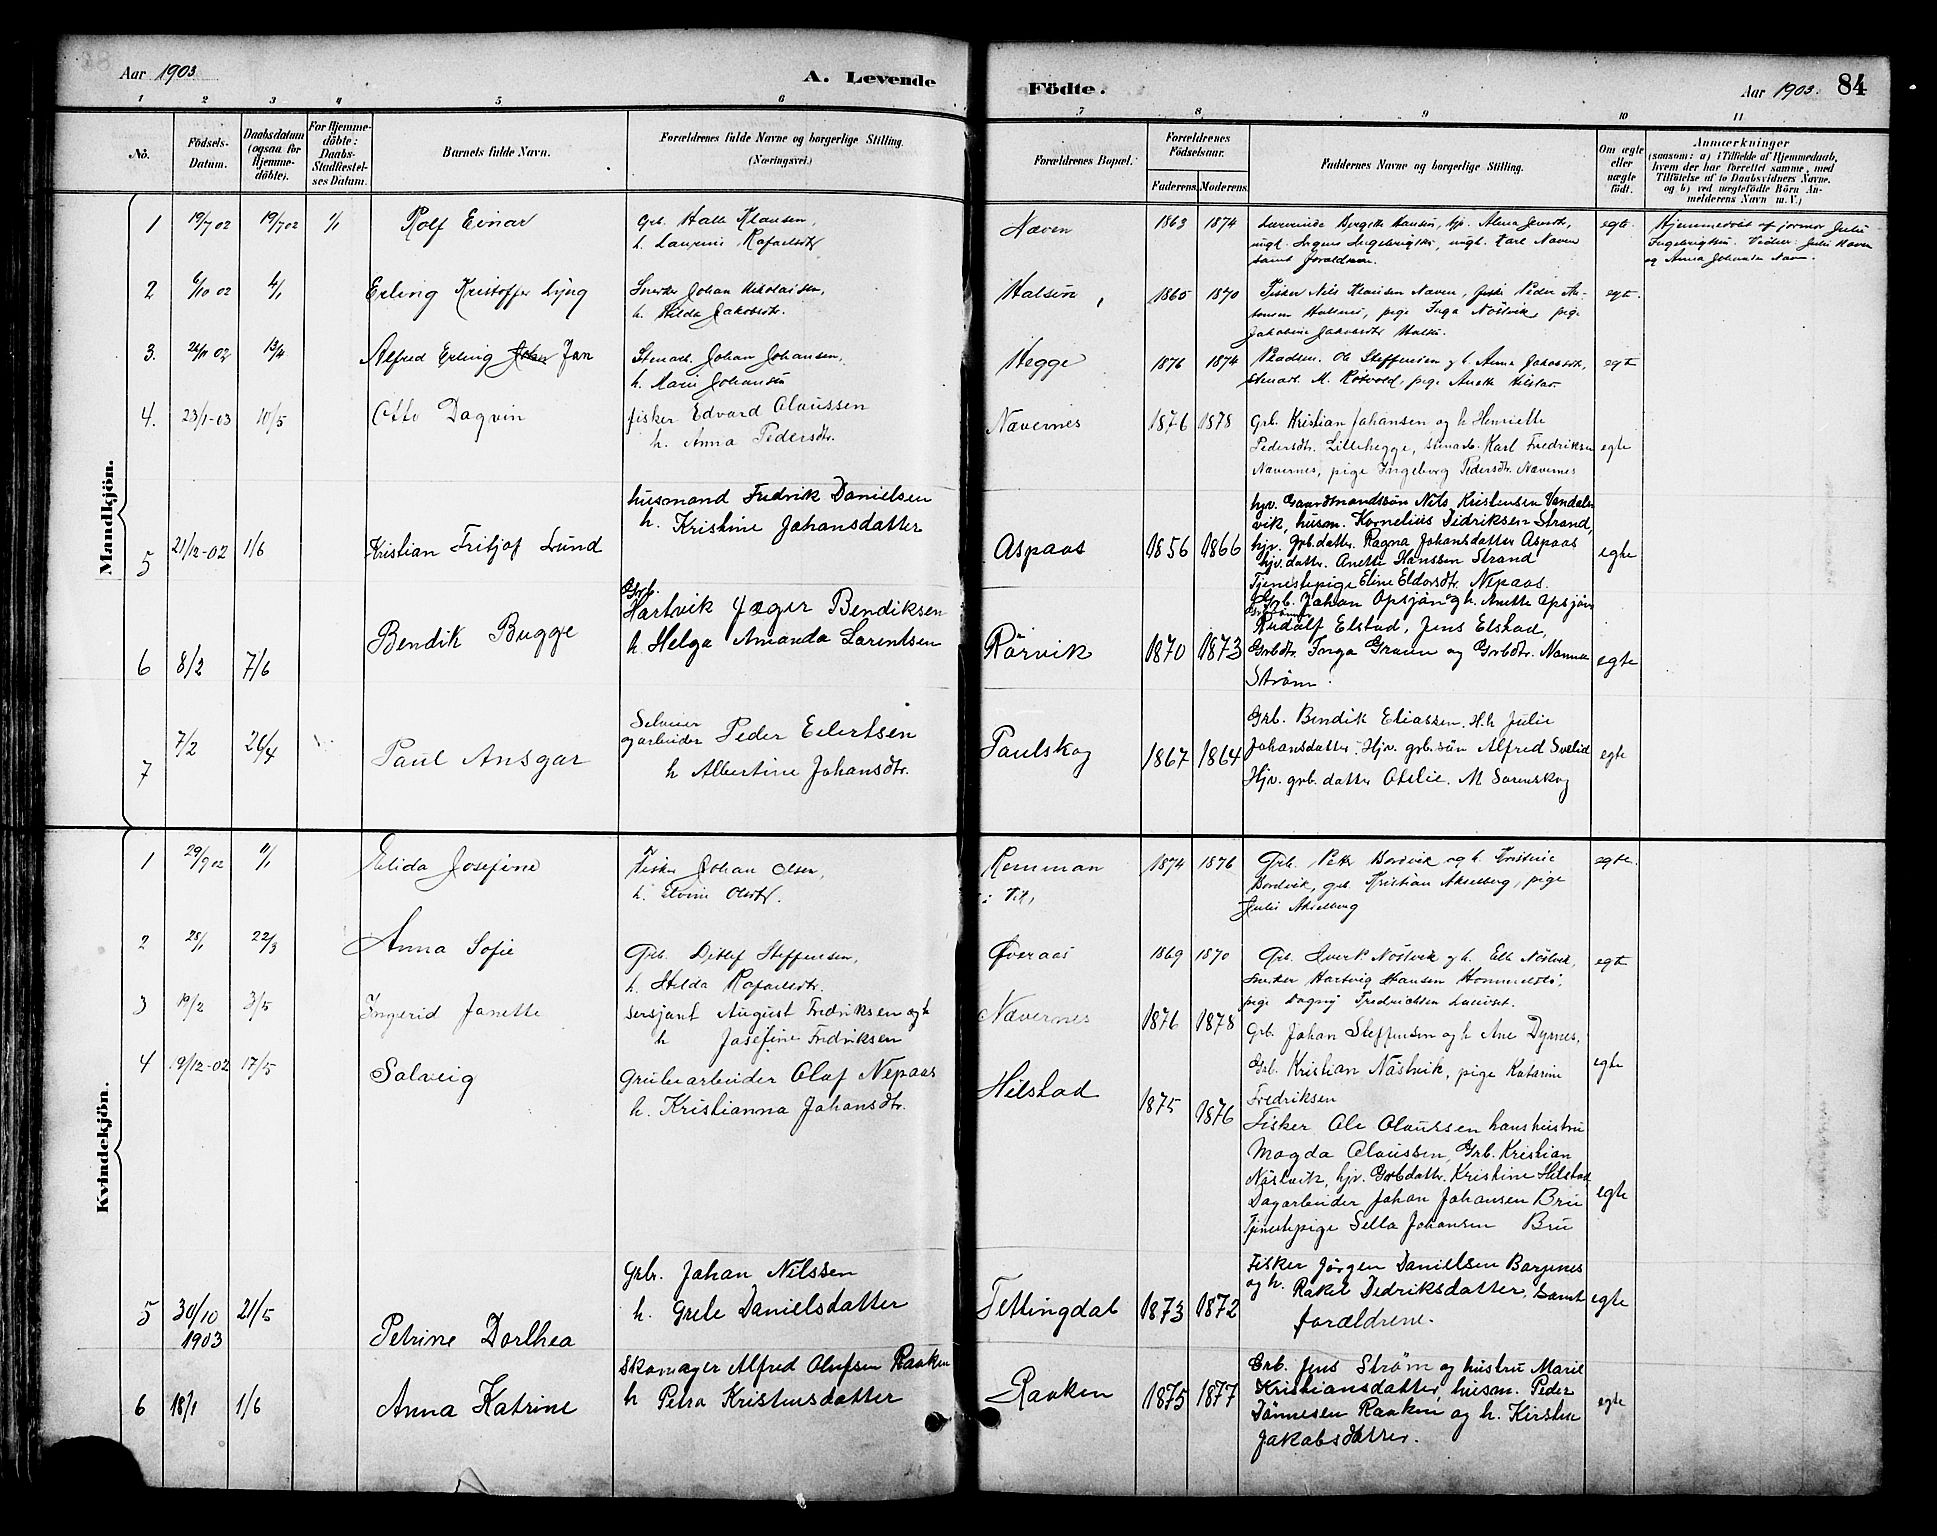 Aar 1903.
A. Levende
Födte.
Aar 1903. 84
1 2 3 4 5 6 7 8 9 10 11
No.
Födsels-
Datum.
Daabsdatum
(ogsaa for
Hjemme-
döbte).
For Hjemme-
döbte:
Daabs-
Stadfæstel-
ses Datum.
Barnets fulde Navn.
Forældrenes fulde Navne og borgerlige Stilling.
(Næringsvei.)
Forældrenes Bopæl.
Forældrenes
Födselsaar.
Faderens. Moderens.
Faddernes Navne og borgerlige Stilling.
Om ægte
eller
uægte
födt.
Anmærkninger
(saasom: a) i Tilfælde af Hjemmedaab,
hvem der har forrettet samme, med
Tilföielse af to Daabsvidners Navne,
og b) ved uægtefödte Börn An-
melderens Navn m. V.)
Mandkjön.
1 19/7 02 19/7 02 1/1 Rolf Einar
Grb. Halle Klausen,
h. Laurine Rafaelsdtr
Næven 1863 1874
samt forældrene.
egte.
2 6/10 02 4/1 Erling Kristoffer Lyng
Snerker Johan Nikolaisen,
h. Hilda Jakobsdtr.
Halsen, 1865 1870
Fisker Nils Klausen Næven, fisker Peder An-
tonsen Halsnes, pige Inga Nöstvik, pige
Jakobine Jakobsdtr Halse.
egt.
3. 24/11 02 13/4 Alfred Erling Johan Jan
Stenarb. Johan Johansen,
h. Marie Johansen
Hegge 1876 1874
Ole Steffensen og h. Anna Jakobsdtr,
stenarb. M. Röstvold, pige Anette Hilstad.
egte
4. 23/1-03 10/5 Otto Dagvin
fisker Edvard Olaussen
h. Anna Pedersdtr.
Nævernes 1876 1878
Grb. Kristian Johansen og h Henriette
Pedersdtr. Lillehegge, stenarb. Karl Fredriksen
Nævernes, pige Ingeborg Pedersdtr. Nævernes
egte
5 21/12-02 1/6 Kristian Fritjof Lund
husmand Fredrik Danielsen
h. Kristine Johansdatter
Aspaas 1856 1866
hjv. Gaardmandssön Nils Kristensen Vandals
vik, husm. Kornelius Didriksen Strand,
hjv. Grb.datter. Ragna Johansdatter Aspaas
hjv. datter. Anette Hanssen Strand
Tjenestepige Eline Eldorsdtr. Nepaas.
egte
6 8/2 7/6 Bendik Bugge
Grb.
Hartvik Jæger Bendiksen
h. Helga Amanda Lorentsen
Rörvik 1870 1873
Grb. Johan Opsjön og h. Anette Opsjön
Rudolf Elstad, Jens Elstad,
Grbdtr. Inga Gröun og Grbdtr. Nanna
Ström.
egte
7 7/2 26/4 Paul Ansgar
Selveier
og arbeider Peder Eilertsen
h Albertine Johansdtr.
Paulskog 1867 1864
Grb. Bendik Eliassen. H.h Julie
Johansdatter. Hjv. grb.sön Alfred Svelid
Hjv. grb. datter Otelie. M Sorenskog
egte
Kvindekjön.
1 29/9 02 1/1 Elida Josefine
Fisker Johan Olsen,
h. Elvine Olsdtr.
Remman
i Vik, 1874 1876
Grb. Petter Bordvik og h. Kristine
Bordvik, grb. Kristian Akselberg, pige
Julie Akselberg
egte.
2 25/1 22/3 Anna Sofie
Grb. Detlef Steffensen,
h. Hilda Rafaelsdtr.
Överaas 1869 1870
Grb. Nöstvik og h. Elb Nöstvik,
snerker Hartvig Hansen Hommelstö,
pige Dagny Fredrichsen
egt
3 19/2 3/5 Ingerid Janette
sersjant August Fredriksen og h
h Josefine Fredriksen
Nævernes 1876 1878
Grb. Johan Steffensen og h Ane Dyrnes,
Grb. Kristian Nästvik, pige Katarine
Fredriksen
egte
4 19/12-02 17/5 Salveig
Grubearbeider Olaf Nepaas
h. Kristianna Johansdtr.
Hilstad 1875 1876
Fisker Ole Olaussen hans hustru
Magda Olaussen, Grb. Kristian
Nästvik, hjv. Grbdatter. Kristine Hilstad
Dagarbeider Johan Johansen Bru
Tjenestepige Sella Johansen Bru
egte
5 30/10 1903 21/5 Petrine Dorthea
Grbr. Johan Nilssen
h. Grete Danielsdatter
Tettingdal 1873 1872
Fisker Jörgen Danielsen Barsnes
og h. Rakel Didriksdatter, samt
forældrene.
egte
6 18/1 1/6 Anna Katrine
Skomager Alfred Olufsen Raaken
h Petra Kristensdatter
Raaken 1875 1877
Grb. Jens Ström og hustru Marie
Kristiansdatter, husm. Peder
Tönnesen Raaken og h. Kirstine
Jakobsdatter.
egte